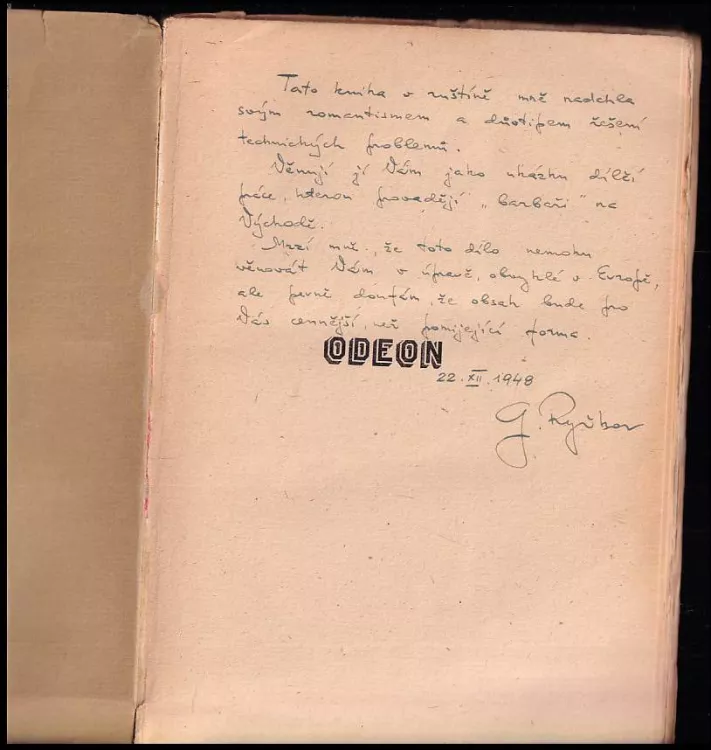 Tato kniha v ruštině mně nadchla
svým romantismem a důvtipem řešení
technických problemů.
Věnuji jí Vám jako ukázku dílčí
práce, kterou provadějí „barbaři" na
Východě.
Mrzí mně, že toto dílo nemohu
věnovát Vám v úpravě, obvyklé v Evropě,
ale pevně doufám, že obsah bude pro
Vás cennější, než pomíjející forma.
ODEON
22. XII. 1948
G.